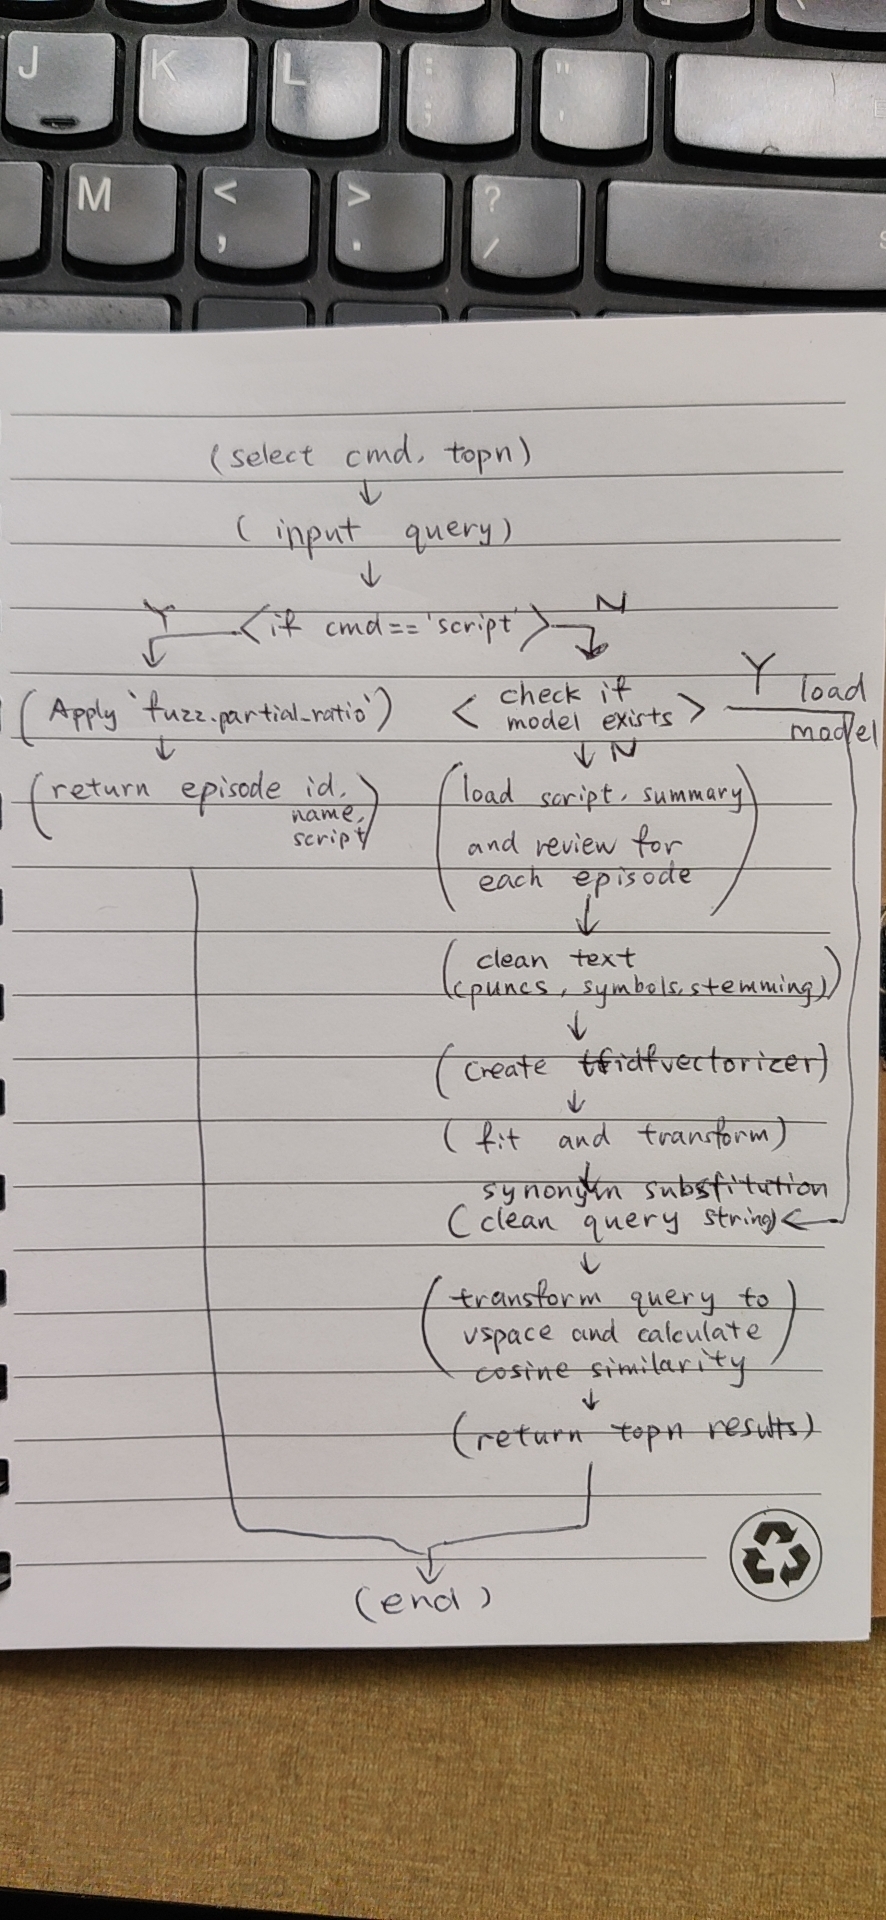 J K L : ; " '
M < , > . ? /
(select cmd, topn)
(input query)
Y <if cmd=='script'> N
(Apply 'fuzz.partial_ratio')
<check if
model exists>
Y load
model
N
(return episode id,
name,
script)
(load script, summary
and review for
each episode)
(clean text
(puncs, symbols, stemming))
(create tfidfvectorizer)
(fit and transform)
synonym substitution
(clean query string)
(transform query to
vspace and calculate
cosine similarity)
(return topn results)
(end)